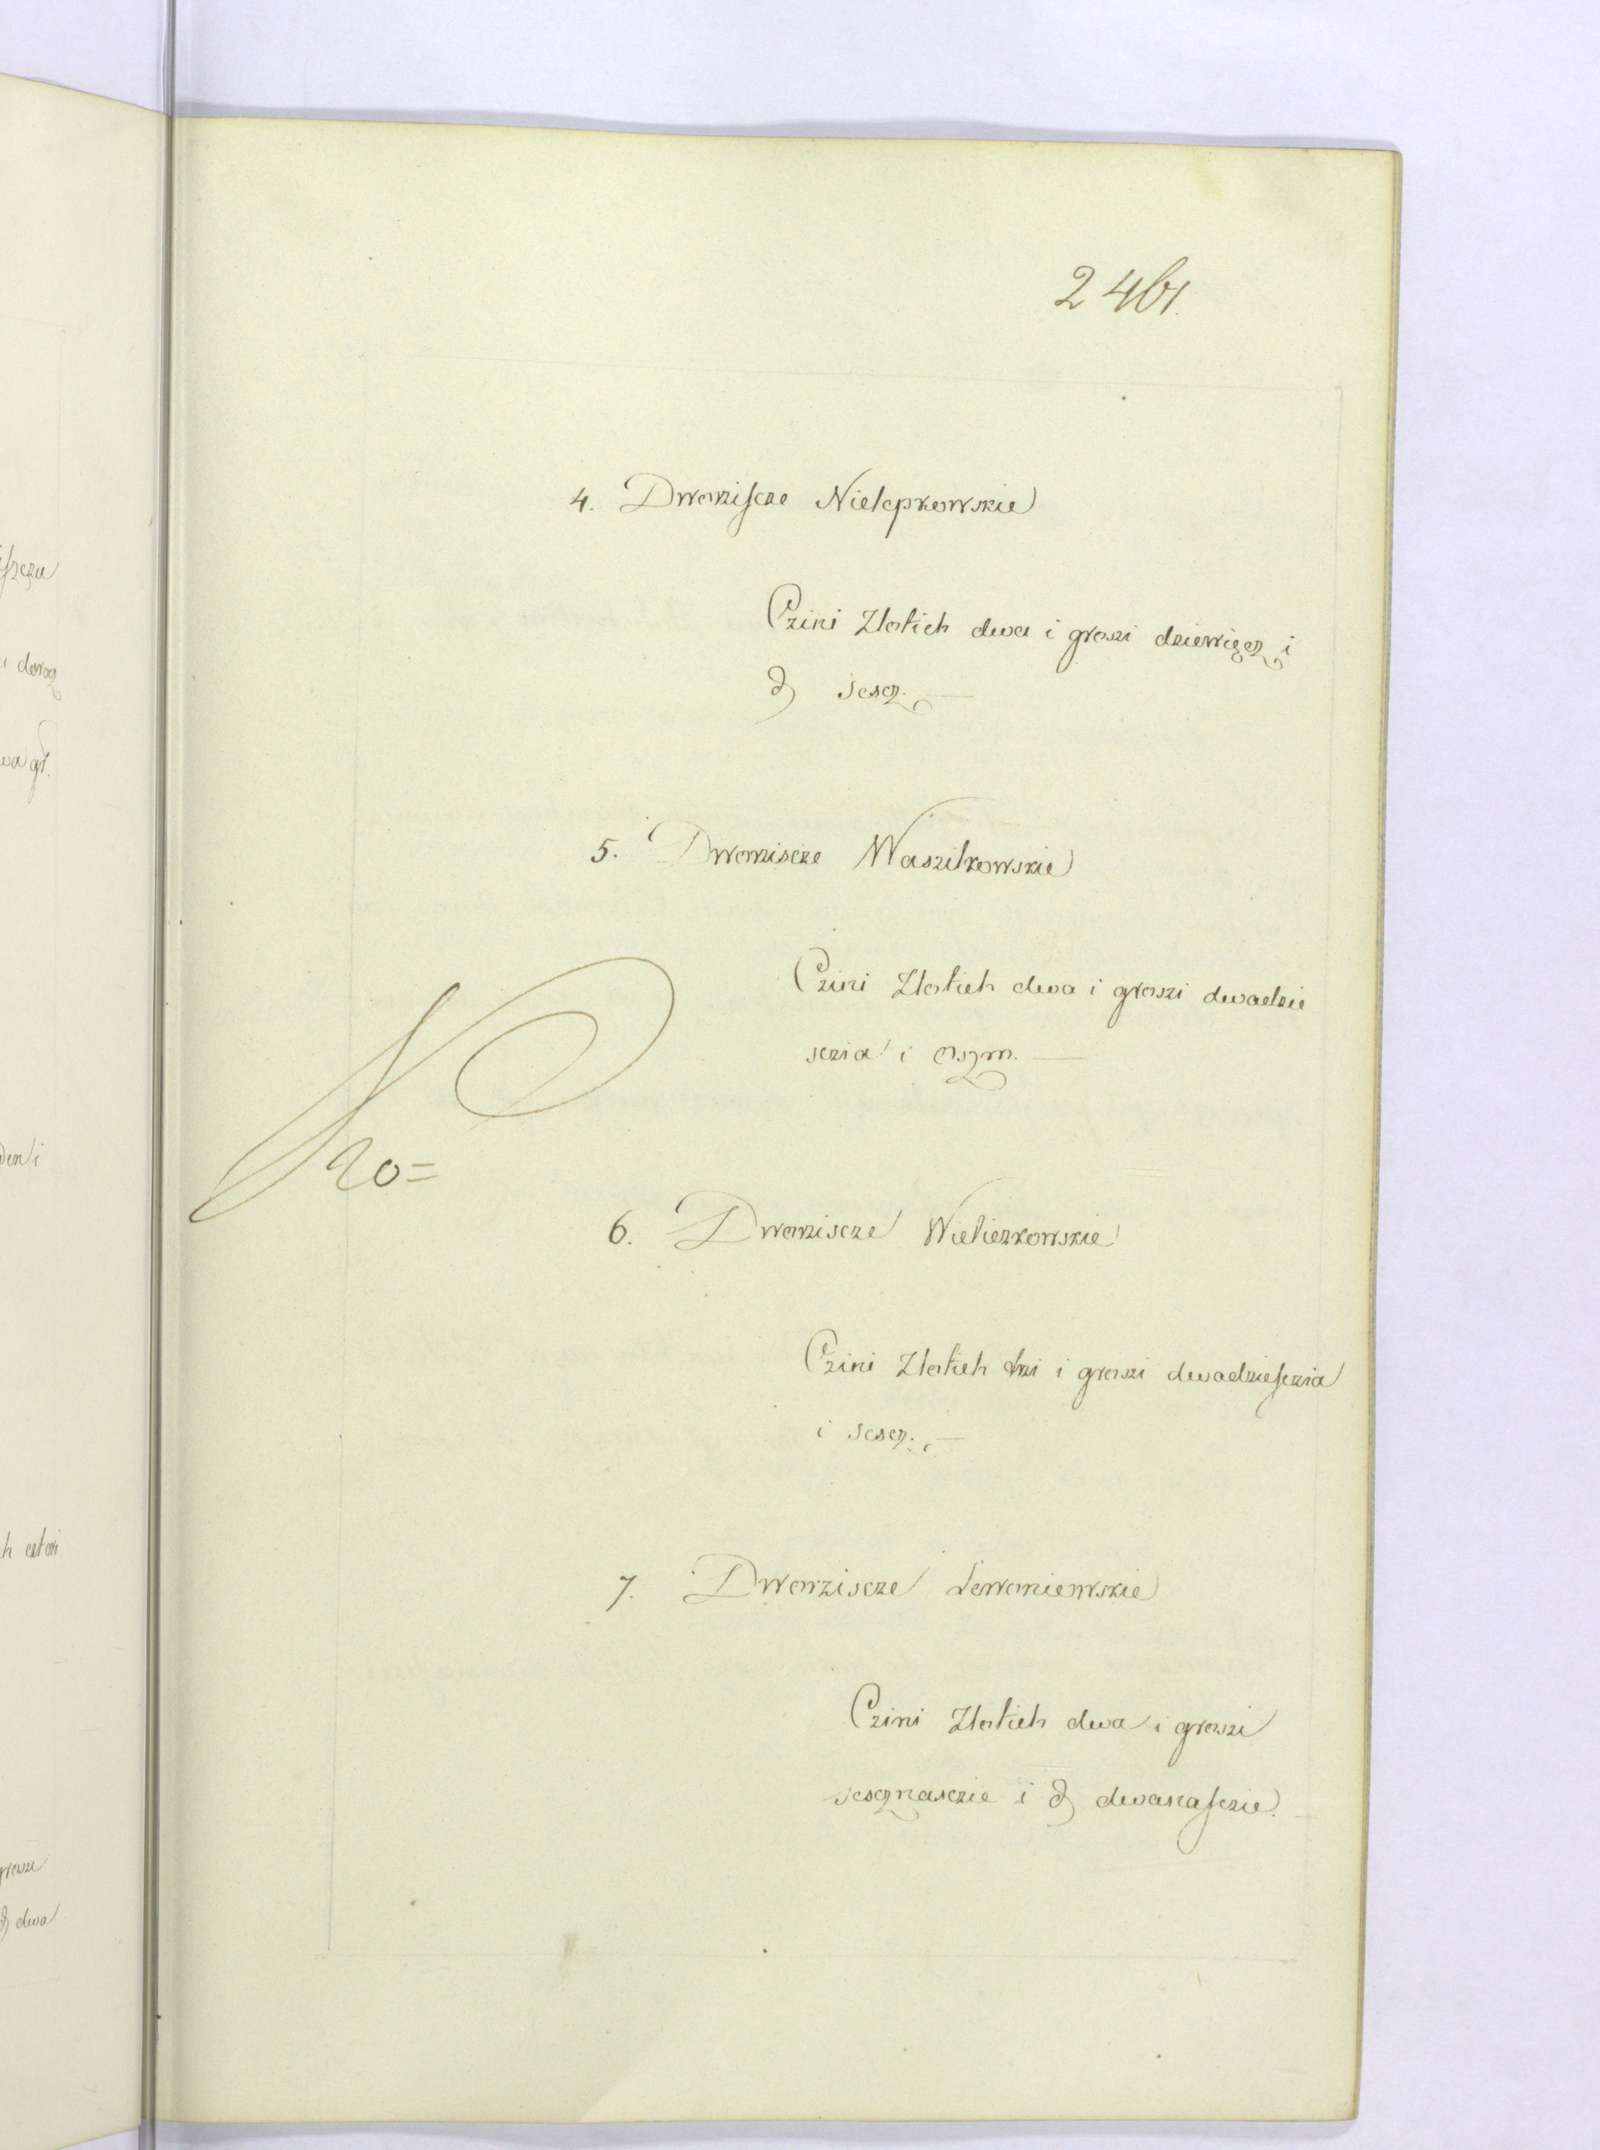 2461.
4. Dworziscze Nielepkowskie
Czini Zlotich dwa i groszi dziewięcz i
₰ sescz. —
5. Dworziscze Waszilkowskie
Czini Zlotich dwa i groszi dwadzie
sczia i oszm. —
6. Dworziscze Wieliczkowskie
Czini Zlotich trzi i groszi dwadziesczia
i sescz. —
7. Dworziscze Lewoniewskie
Czini Zlotich dwa i groszi
sescznasczie i ₰ dwanasczie.
wa gr.
grosze
₰ dwa